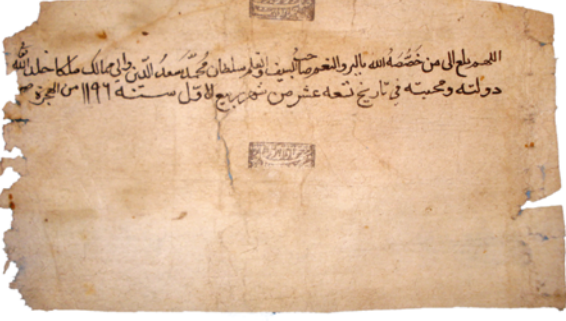 اللهم بلغ الى من خصصه الله بالبر والنعم صاحب السيف والقلم سلطان محمد سعد الدين والي ممالك ملكا خلد الله
دولته ومحبته في تاريخ تتعه عشر من شهر ربيع لاول سنته ١١٩٦ من الهجرة